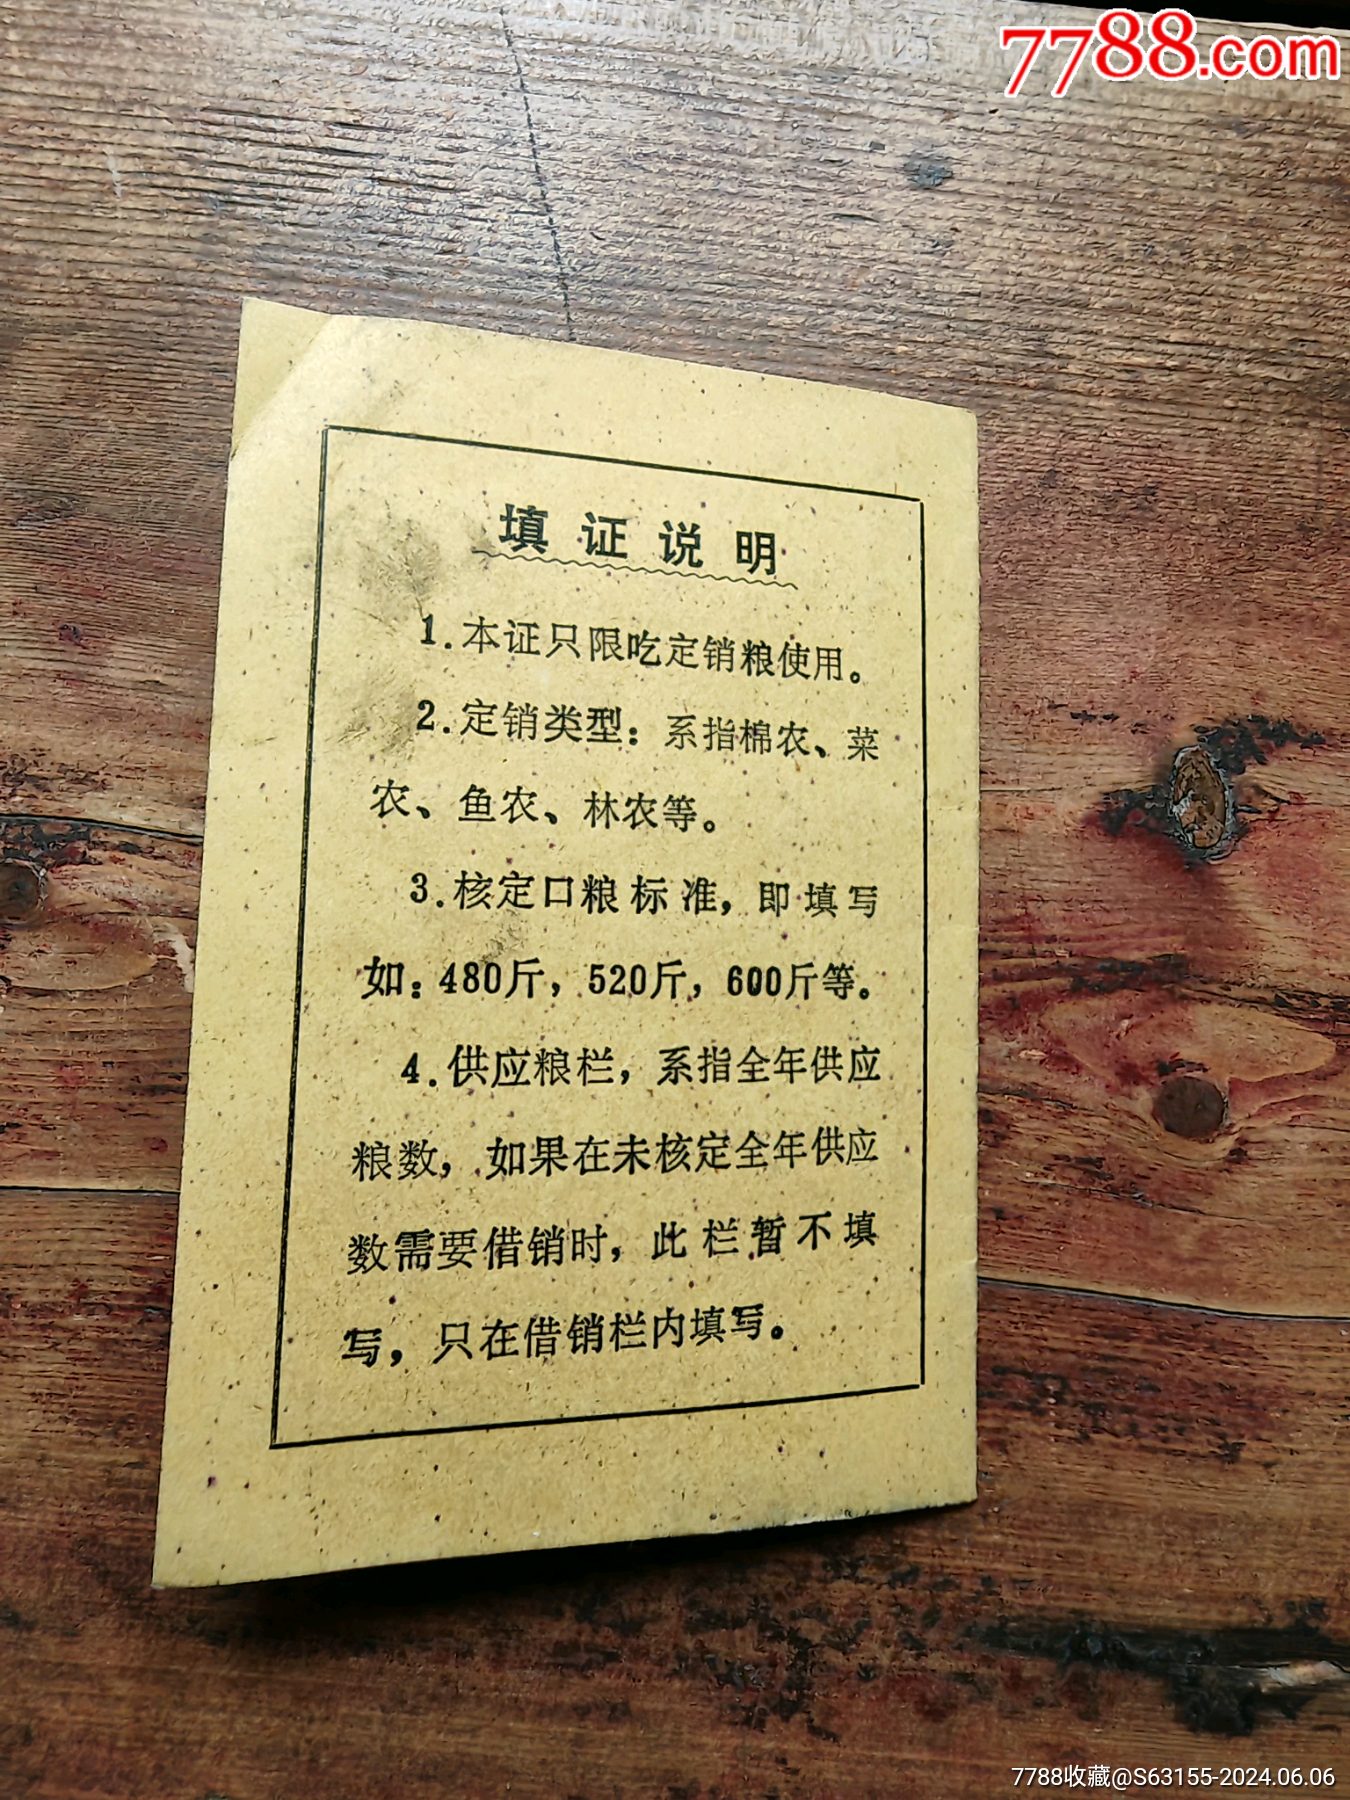 7788.com
填证说明
1.本证只限吃定销粮使用。
2.定销类型：系指棉农、菜
农、鱼农、林农等。
3.核定口粮标准，即填写
如：480斤，520斤，600斤等。
4.供应粮栏，系指全年供应
粮数，如果在未核定全年供应
数需要借销时，此栏暂不填
写，只在借销栏内填写。
7788收藏@S63155-2024.06.06